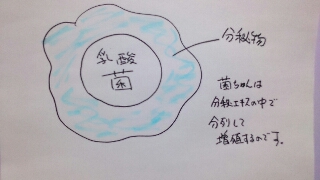 分秘物
乳酸
菌
菌ちゃんは
分秘エキスの中で
分列して
増殖するのです。